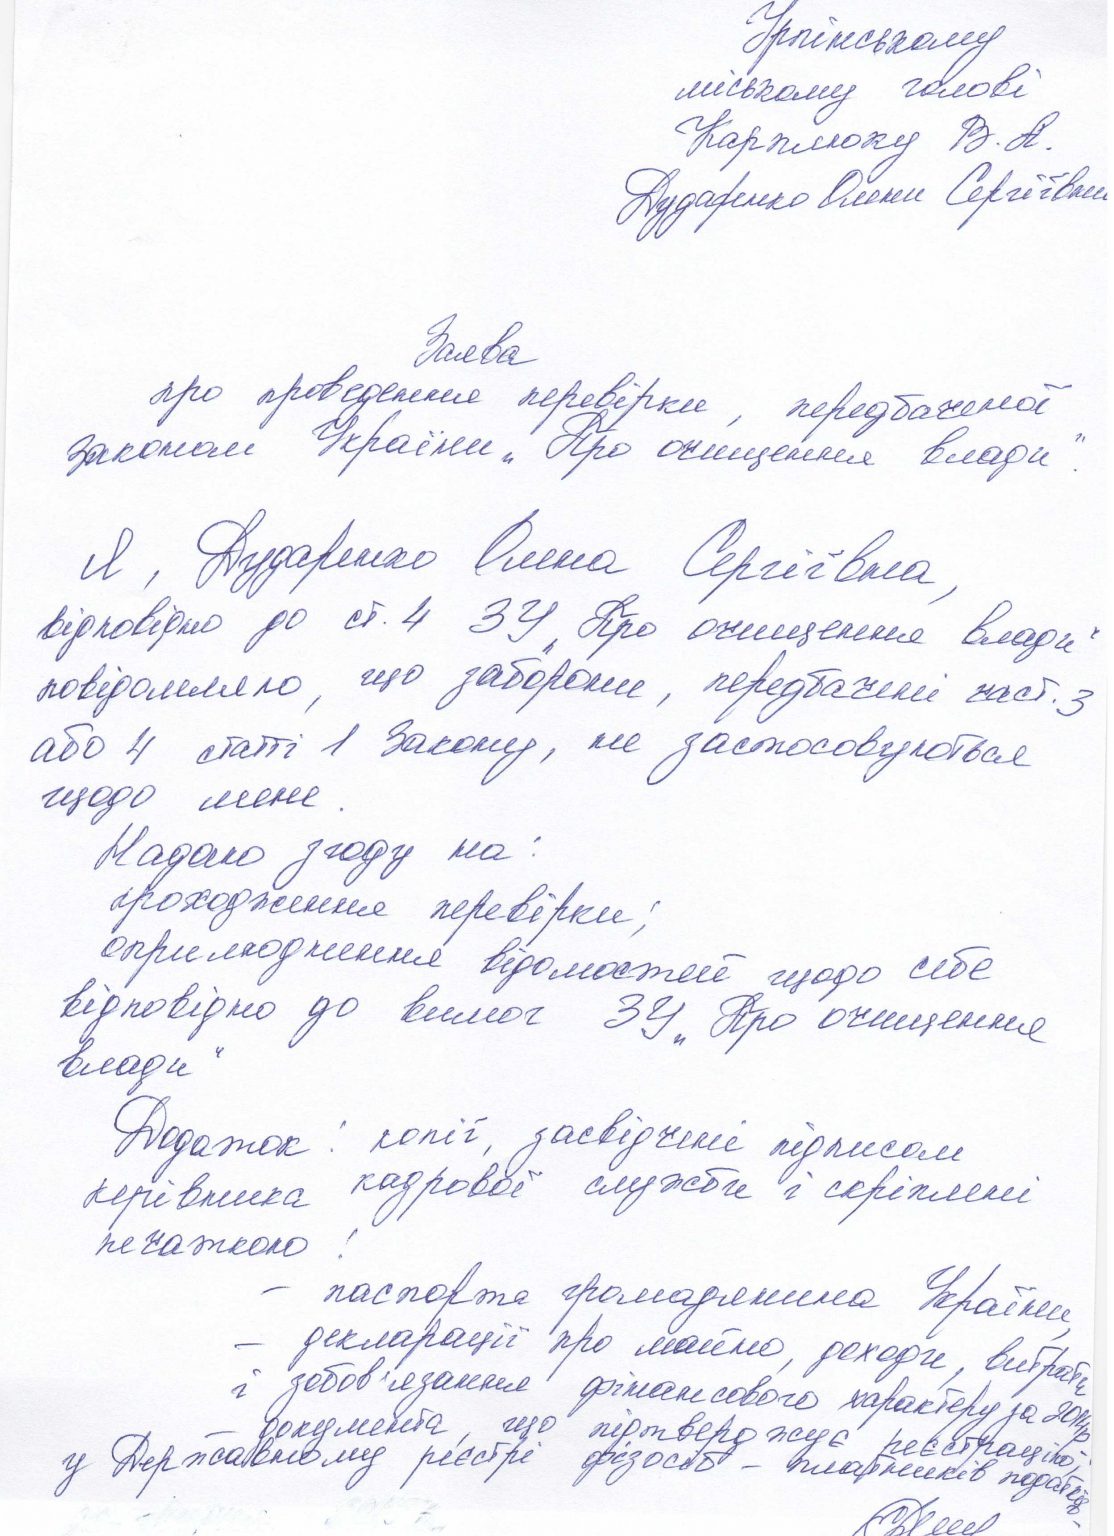 Ірпінському
міському голові
Карплюку В. А.
Дударенко Олени Сергіївни
Заява
про проведення перевірки, передбаченої
законом України „Про очищення влади".
Я, Дударенко Олена Сергіївна,
відповідно до ст. 4 ЗУ „Про очищення влади"
повідомляю, що заборони, передбачені част. 3
або 4 статті 1 Закону, не застосовуються
щодо мене.
Надаю згоду на:
проходження перевірки;
оприлюднення відомостей щодо себе
відповідно до вимог ЗУ „Про очищення
влади"
Додаток: копії, засвідчені підписом
керівника кадрової служби і скріплені
печаткою:
– паспорта громадянина України,
– декларації про майно, доходи, витрати
і зобов'язання фінансового характеру за
– документа, що підтверджує реєстрацію
у Державному реєстрі фізосіб – платників податків